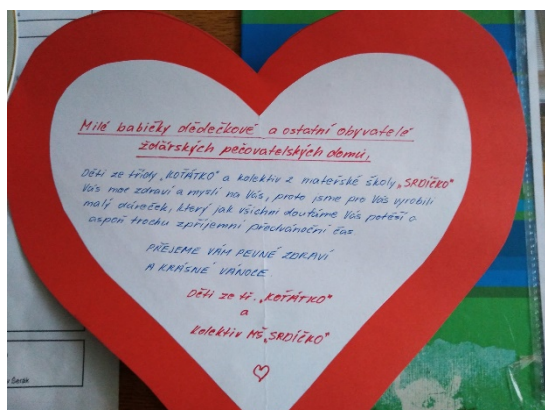 Milé babičky dědečkové a ostatní obyvatelé
žďárských pečovatelských domů,
Děti ze třídy „KOŤÁTKO" a kolektiv z mateřské školy „SRDÍČKO"
Vás moc zdraví a myslí na Vás, proto jsme pro Vás vyrobili
malý dáreček, který jak všichni doufáme Vás potěší a
aspoň trochu zpříjemní předvánoční čas
PŘEJEME VÁM PEVNÉ ZDRAVÍ
A KRÁSNÉ VÁNOCE.
Děti ze tř. „KOŤÁTKO"
a
kolektiv MŠ „SRDÍČKO"
Šerák